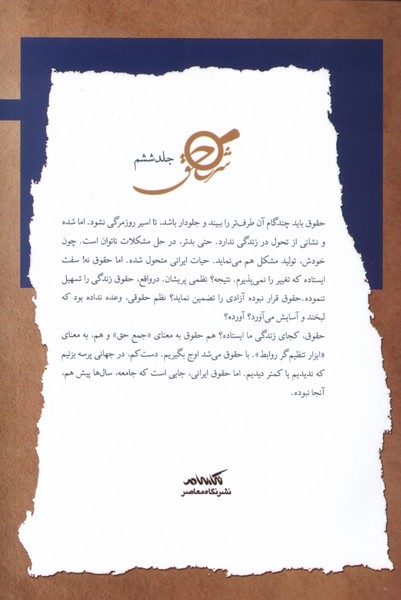 شرح حق
جلد ششم
حقوق باید چندگام آن طرف‌تر را ببیند و جلودار باشد، تا اسیر روزمرگی نشود. اما شده
و نشانی از تحول در زندگی ندارد. حتی بدتر، در حل مشکلات ناتوان است. چون
خودش، تولید مشکل هم می‌نماید. حیات ایرانی متحول شده. اما حقوق نه! سفت
ایستاده که تغییر را نمی‌پذیرم. نتیجه؟ نظمی پریشان. درواقع، حقوق زندگی را تسهیل
ننموده.حقوق قرار نبوده آزادی را تضمین نماید؟ نظم حقوقی، وعده نداده بود که
لبخند و آسایش می‌آورد؟ آورده؟
حقوق، کجای زندگی ما ایستاده؟ هم حقوق به معنای «جمع حق» و هم، به معنای
«ابزار تنظیم‌گر روابط». با حقوق می‌شد اوج بگیریم. دست‌کم، در جهانی پرسه بزنیم
که ندیدیم یا کمتر دیدیم. اما حقوق ایرانی، جایی است که جامعه، سال‌ها پیش هم،
آنجا نبوده.
نشرنگاه‌معاصر